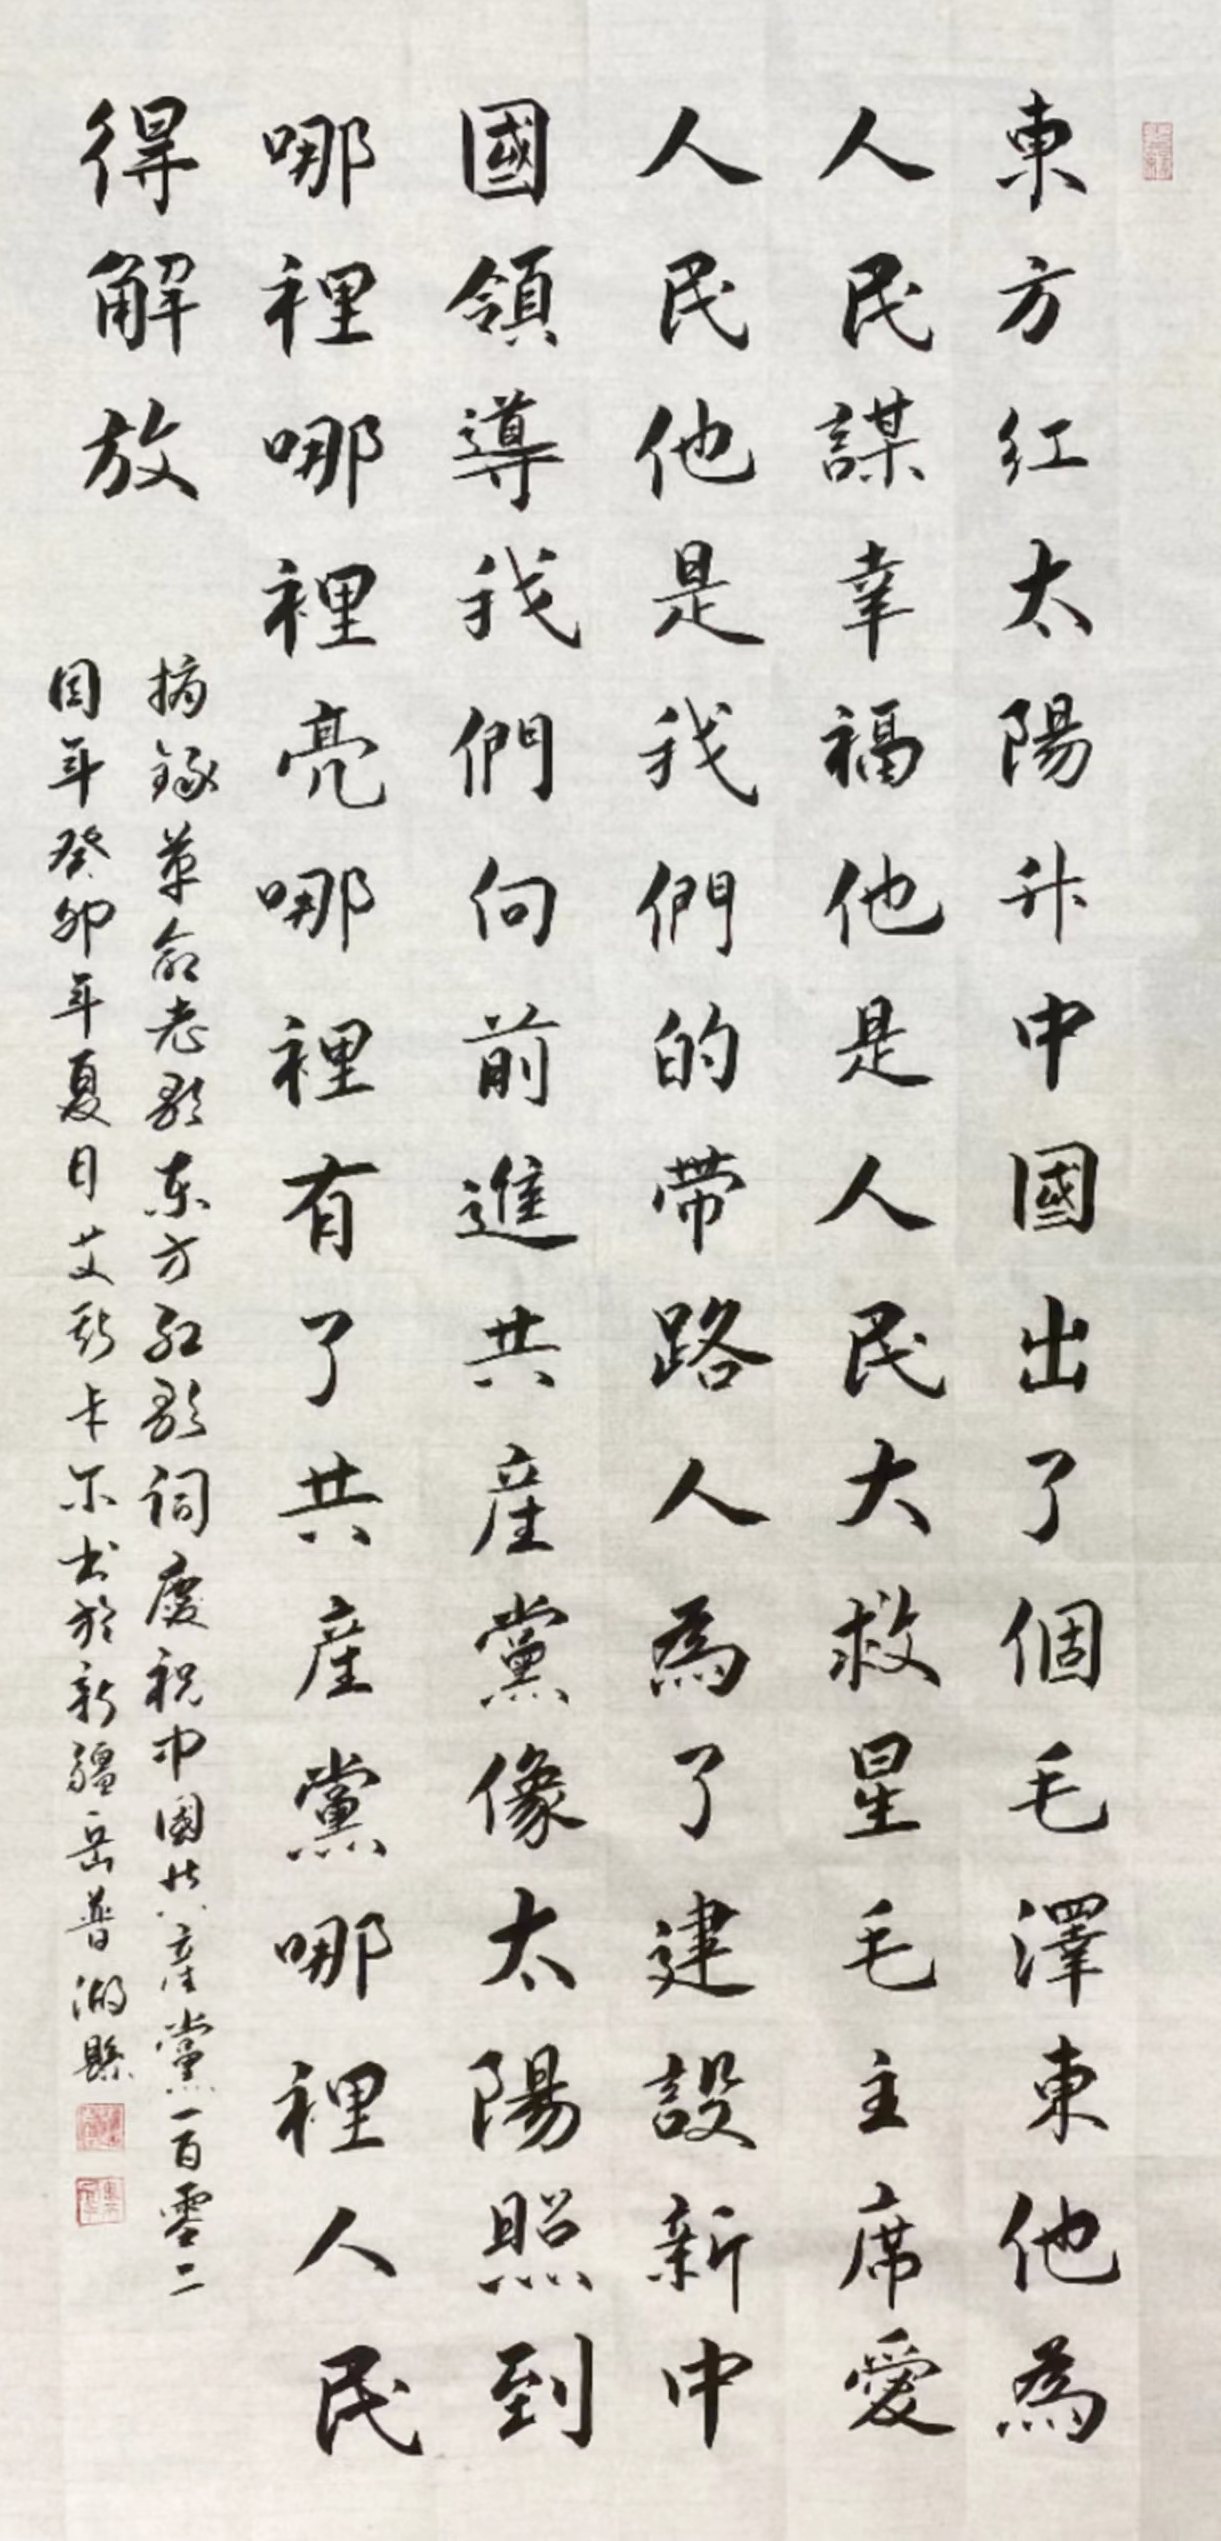 東方红太陽升中國出了個毛澤東他為
人民謀幸福他是人民大救星毛主席愛
人民他是我們的带路人為了建設新中
國領導我們向前進共産黨像太陽照到
哪裡哪裡亮哪裡有了共産黨哪裡人民
得解放
摘録革命老歌东方红歌詞慶祝中國共産黨一百零二
周年癸卯年夏日艾斯卡尔书於新疆岳普湖縣